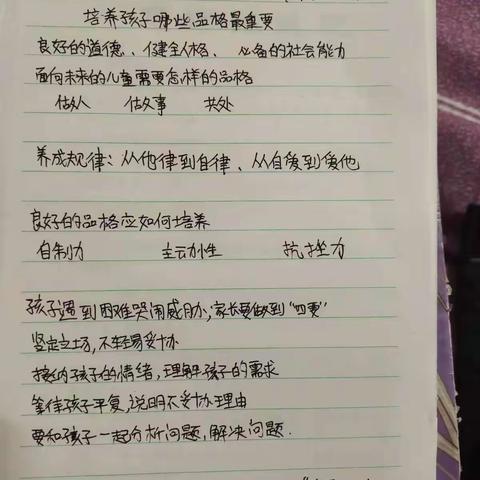 培养孩子哪些品格最重要
良好的道德、健全人格、必备的社会能力
面向未来的儿童需要怎样的品格
做人 做事 共处
养成规律：从他律到自律、从自爱到爱他
良好的品格应如何培养
自制力 主动性 抗挫力
孩子遇到困难哭闹威胁，家长要做到“四要”
坚定立场，不轻易妥协
接纳孩子的情绪，理解孩子的需求
等待孩子平复，说明不妥协理由
要和孩子一起分析问题，解决问题.